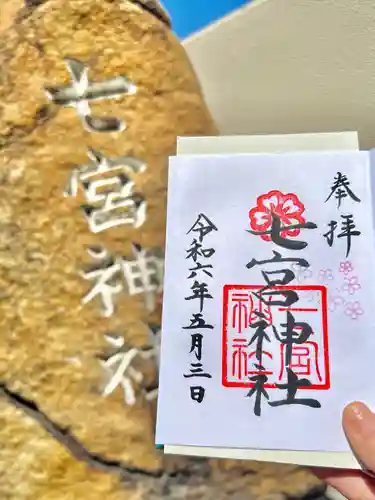 七宮神社
奉拝
七宮神社
七宮
神社
令和六年五月三日